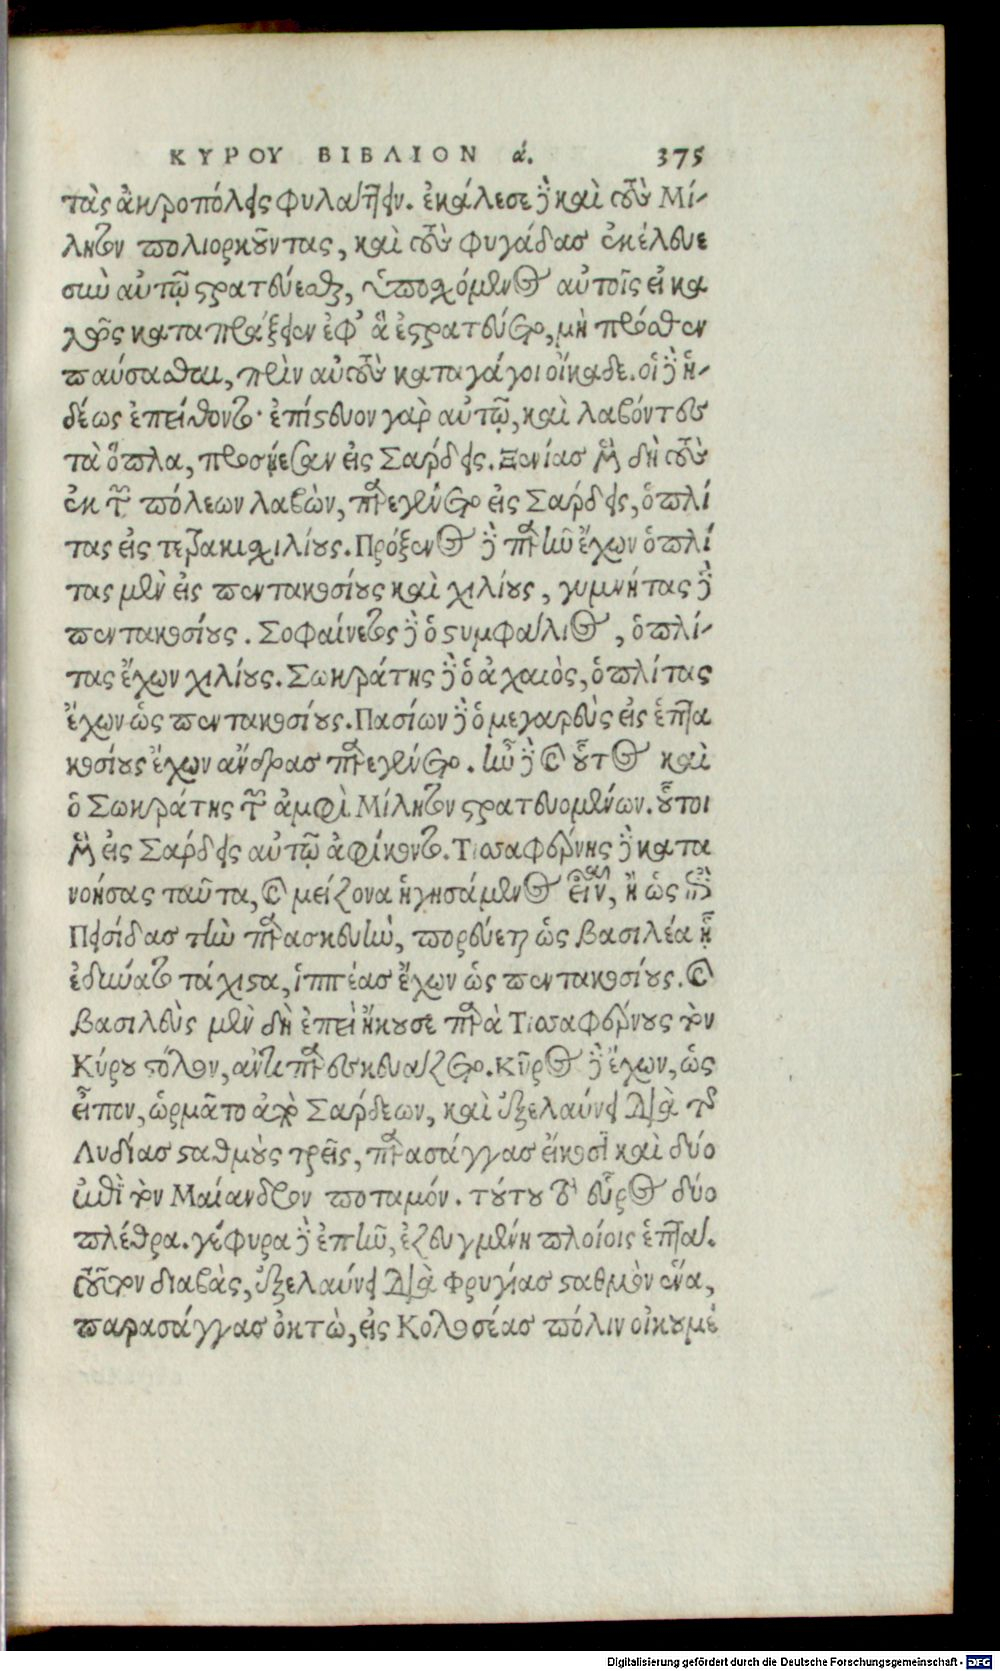 ΚΥΡΟΥ ΒΙΒΛΙΟΝ ά. 375
τὰς ἀκροπόλεις φυλάττειν. ἐκάλεσε δὲ καὶ τοὺς Μί-
λητον πολιορκοῦντας, καὶ τοὺς φυγάδας ἐκέλευε
σὺν αὐτῷ στρατεύεσθαι, ὑποσχόμενος αὐτοῖς εἰ κα
λῶς καταπράξειεν ἐφ' ἃ ἐστρατεύετο, μὴ πρόσθεν
παύσασθαι, πρὶν αὐτοὺς καταγάγοι οἴκαδε. οἱ δὲ ἡ-
δέως ἐπείθοντο· ἐπίστευον γὰρ αὐτῷ, καὶ λαβόντες
τὰ ὅπλα, προσῄεσαν εἰς Σάρδεις. Ξενίας μὲν δὴ τοὺς
ἐκ τῶν πόλεων λαβὼν, παρεγένετο εἰς Σάρδεις, ὁπλί
τας εἰς τετρακισχιλίους. Πρόξενος δὲ παρῆν ἔχων ὁπλί
τας μὲν εἰς πεντακοσίους καὶ χιλίους, γυμνήτας δὲ
πεντακοσίους. Σοφαίνετος δὲ ὁ στυμφάλιος, ὁπλί-
τας ἔχων χιλίους. Σωκράτης δὲ ὁ ἀχαιὸς, ὁπλίτας
ἔχων ὡς πεντακοσίους. Πασίων δὲ ὁ μεγαρεὺς εἰς ἑπτα
κοσίους ἔχων ἄνδρας παρεγένετο. ἦν δὲ καὶ οὗτος καὶ
ὁ Σωκράτης τῶν ἀμφὶ Μίλητον στρατευομένων. οὗτοι
μὲν εἰς Σάρδεις αὐτῷ ἀφίκοντο. Τισσαφέρνης δὲ κατα
νοήσας ταῦτα, καὶ μείζονα ἡγησάμενος εἶναι, ἢ ὡς ἐπὶ
Πεισίδας τὴν παρασκευὴν, πορεύεται ὡς βασιλέα ᾗ
ἐδύνατο τάχιστα, ἱππέας ἔχων ὡς πεντακοσίους. καὶ
βασιλεὺς μὲν δὴ ἐπεὶ ἤκουσε παρὰ Τισσαφέρνους τὸν
Κύρου στόλον, ἀντιπαρεσκευάζετο. Κῦρος δὲ ἔχων, ὡς
εἶπον, ὡρμᾶτο ἀπὸ Σάρδεων, καὶ ἐξελαύνει διὰ τῆς
Λυδίας σταθμοὺς τρεῖς, παρασάγγας εἴκοσι καὶ δύο
ἐπὶ τὸν Μαίανδρον ποταμόν. τούτου τὸ εὖρος δύο
πλέθρα. γέφυρα δὲ ἐπῆν, ἐζευγμένη πλοίοις ἑπτά.
τοῦτον διαβὰς, ἐξελαύνει διὰ Φρυγίας σταθμὸν ἕνα,
παρασάγγας ὀκτὼ, εἰς Κολοσέας πόλιν οἰκουμέ
Digitalisierung gefördert durch die Deutsche Forschungsgemeinschaft - DFG